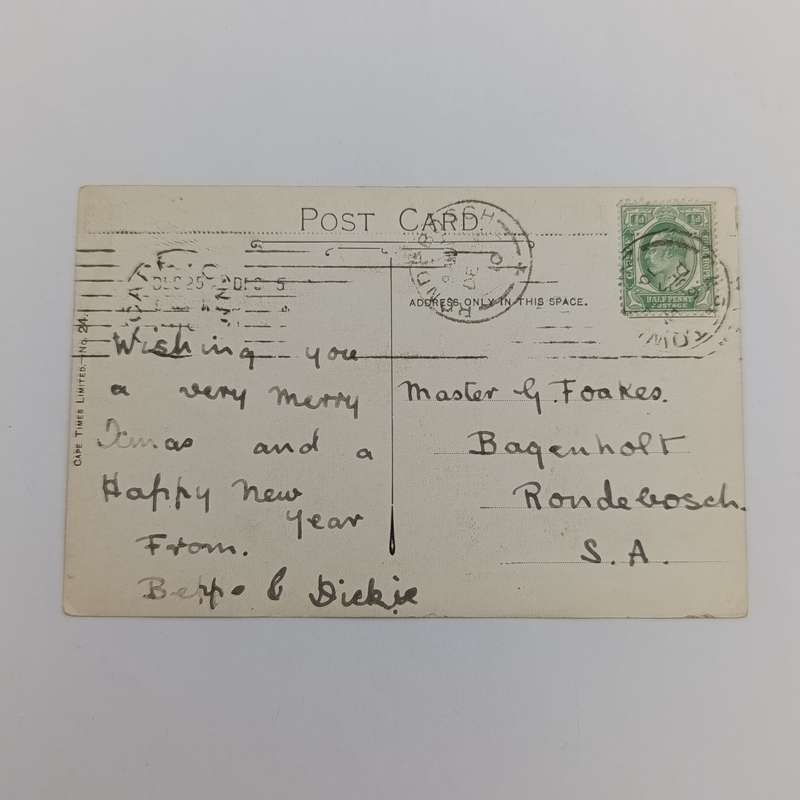 POST CARD
ADDRESS ONLY IN THIS SPACE.
CAPE TIMES LIMITED.—No. 24.
HALF PENNY
POSTAGE
RONDEBOSCH
Wishing you
a very merry
Ximas and a
Happy New
Year
From.
Beppo & Dickie
Master G. Foakes.
Bagenholt
Rondebosch.
S.A.